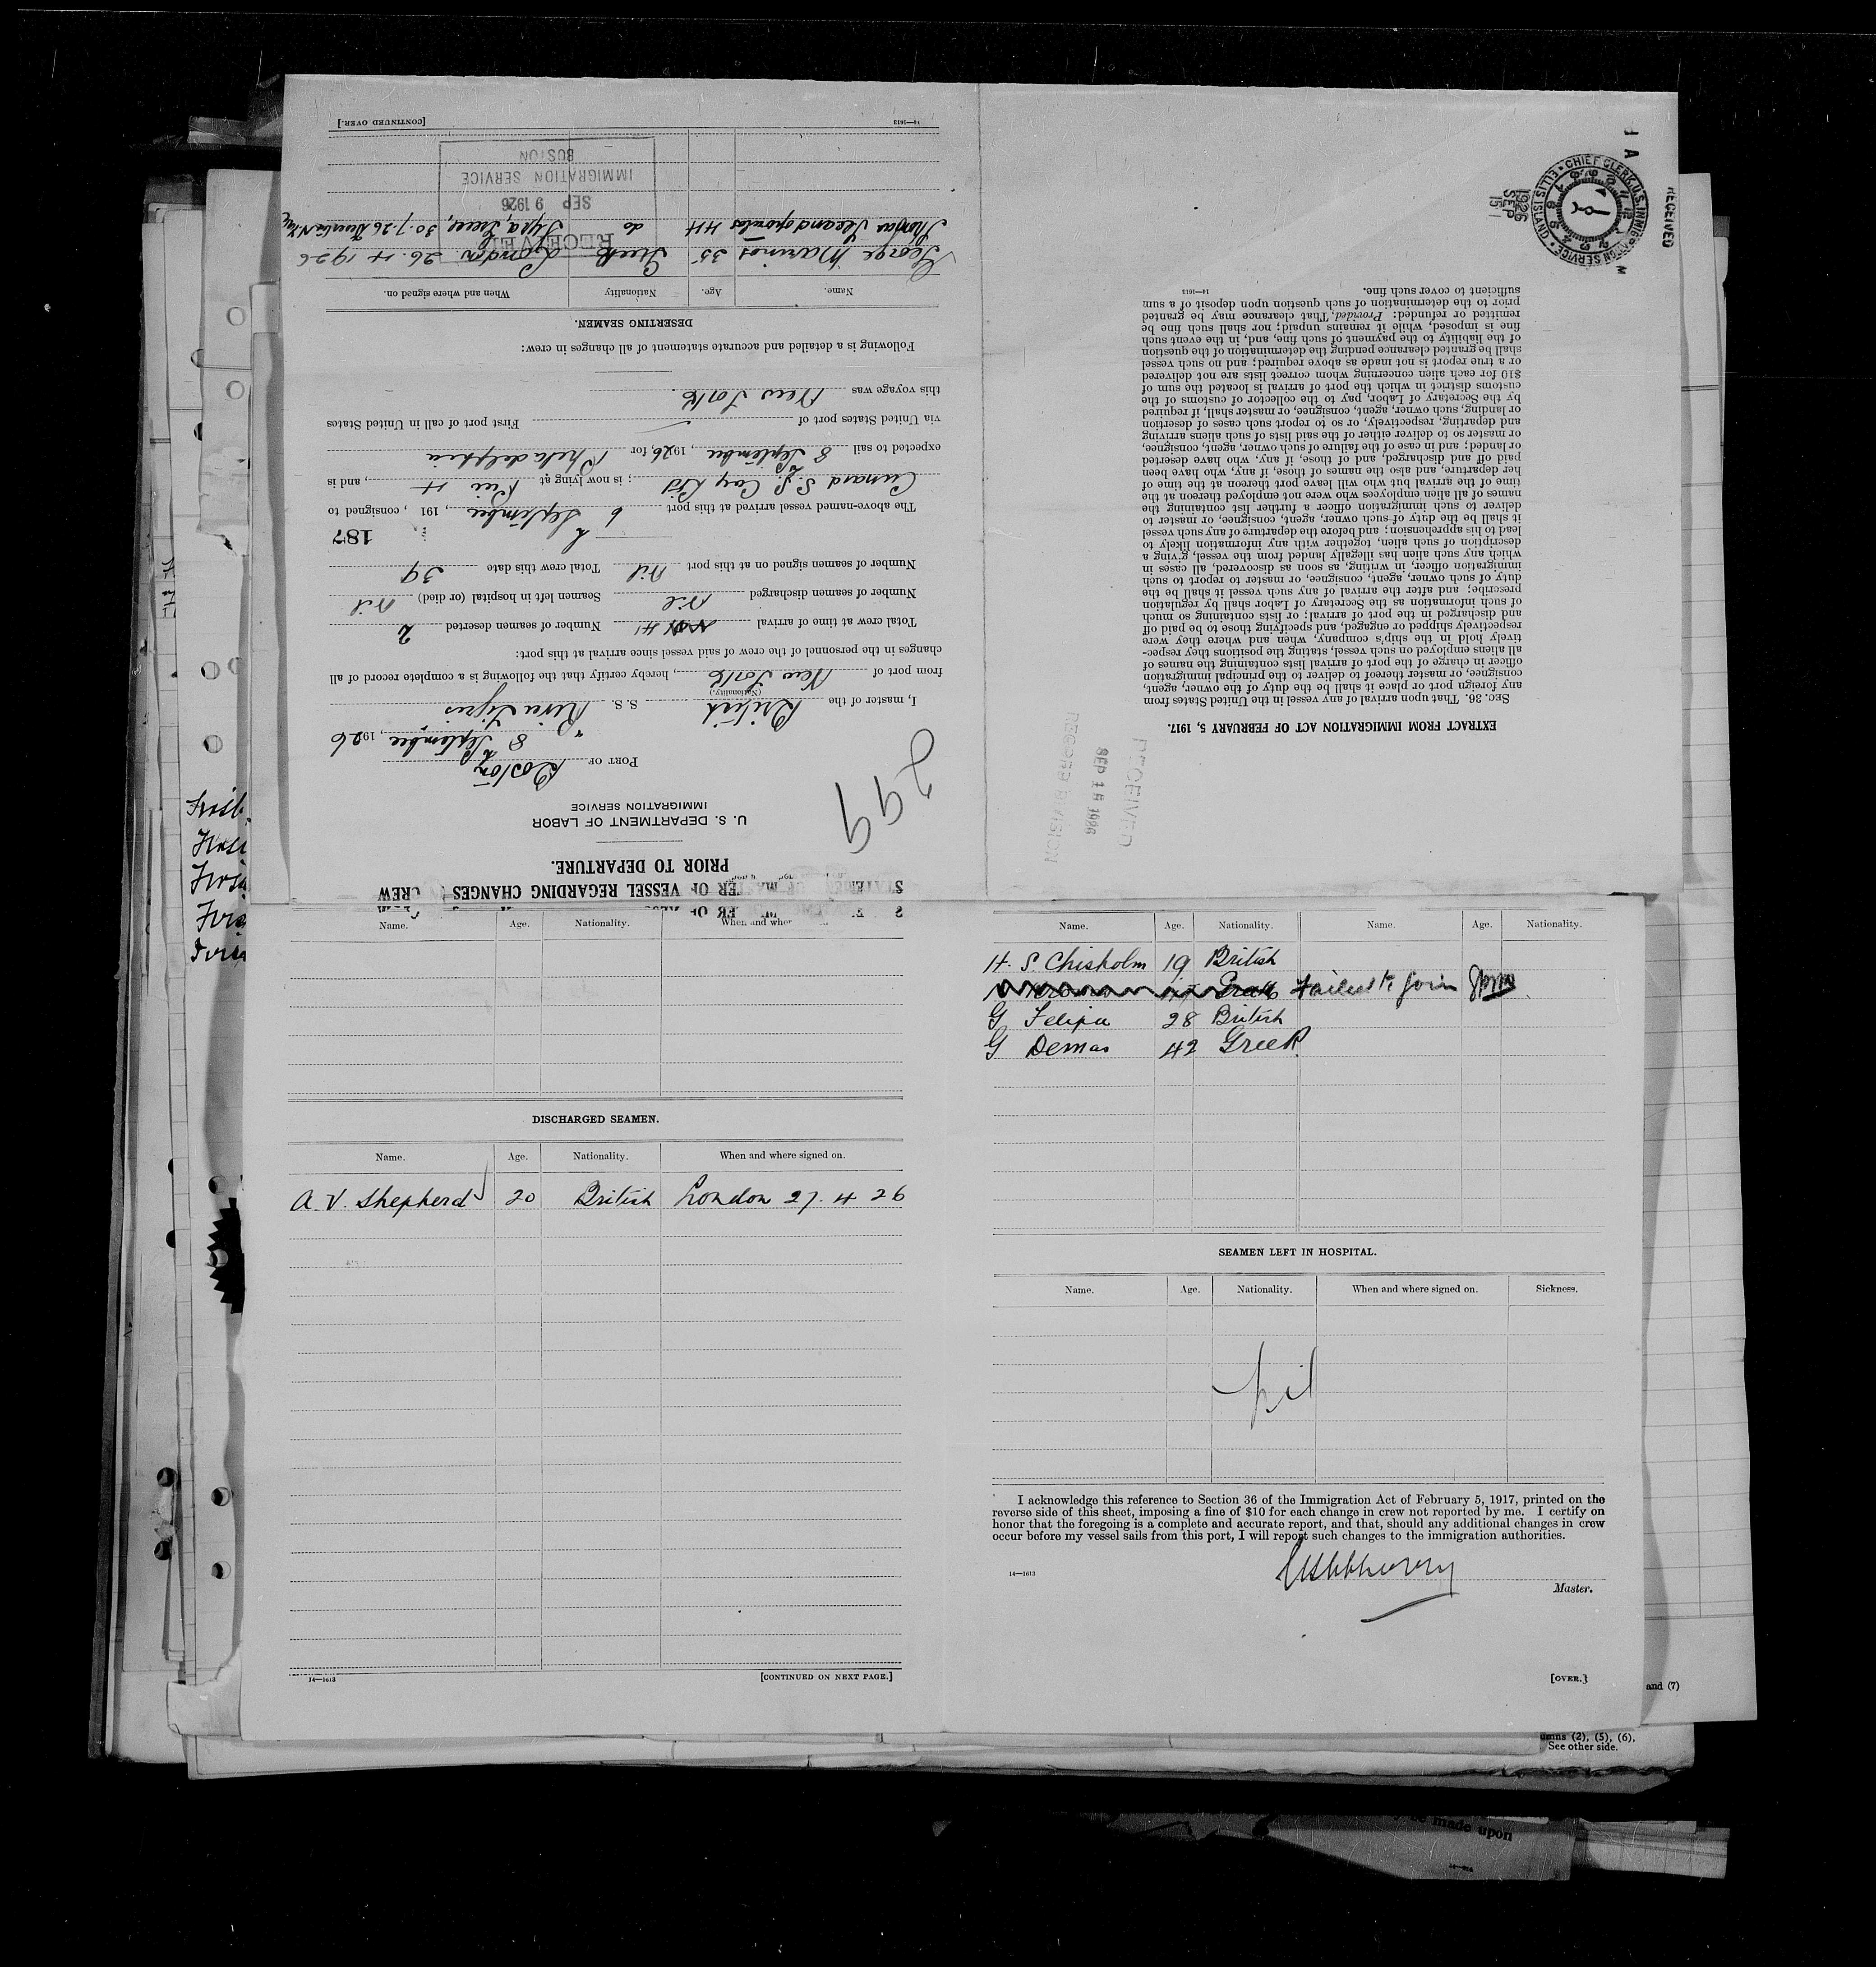 STATEMENT OF MASTER OF VESSEL REGARDING CHANGES CREW
PRIOR TO DEPARTURE.
U. S. DEPARTMENT OF LABOR
IMMIGRATION SERVICE
299
PORT OF Boston
8 September, 1926
I, master of the British S. S. "River Tigris
(Nationality.)
from port of New York, hereby certify that the following is a complete record of all
changes in the personnel of the crew of said vessel since arrival at this port:
Total crew at time of arrival 41 Number of seamen deserted 2
Number of seamen discharged Nil Seamen left in hospital (or died) Nil
Number of seamen signed on at this port Nil Total crew this date 39
187
The above-named vessel arrived at this port 6 September, 191 , consigned to
Cunard S.S. Coy Ltd; is now lying at Pier 4, and is
expected to sail 8 September, 1926, for Philadelphia
via United States port of First port of call in United States
this voyage was New York.
Following is a detailed and accurate statement of all changes in crew:
DESERTING SEAMEN.
Name. Age. Nationality When and where signed on.
George Marinos 35 Greek London 26.4.1926
Thomas 44 do 30.7.26
RECEIVED
SEP 9 1926
IMMIGRATION SERVICE
BOSTON
14—1613 [CONTINUED OVER.]
RECEIVED
SEP 18 1926
RECORD DIVISION
EXTRACT FROM IMMIGRATION ACT OF FEBRUARY 5, 1917.
SEC. 36. That upon arrival of any vessel in the United States from
any foreign port or place it shall be the duty of the owner, agent,
consignee, or master thereof to deliver to the principal immigration
officer in charge of the port of arrival lists containing the names of
all aliens employed on such vessel, stating the positions they respec-
tively hold in the ship's company, when and where they were
respectively shipped or engaged, and specifying those to be paid off
and discharged in the port of arrival; or lists containing so much
of such information as the Secretary of Labor shall by regulation
prescribe; and after the arrival of any such vessel it shall be the
duty of such owner, agent, consignee, or master to report to such
immigration officer, in writing, as soon as discovered, all cases in
which any such alien has illegally landed from the vessel, giving a
description of such alien, together with any information likely to
lead to his apprehension; and before the departure of any such vessel
it shall be the duty of such owner, agent, consignee, or master to
deliver to such immigration officer a further list containing the
names of all alien employees who were not employed thereon at the
time of the arrival but who will leave port thereon at the time of
her departure, and also the names of those, if any, who have been
paid off and discharged, and of those, if any, who have deserted
or landed; and in case of the failure of such owner, agent, consignee,
or master so to deliver either of the said lists of such aliens arriving
and departing, respectively, or so to report such cases of desertion
or landing, such owner, agent, consignee, or master shall, if required
by the Secretary of Labor, pay to the collector of customs of the
customs district in which the port of arrival is located the sum of
$10 for each alien concerning whom correct lists are not delivered
or a true report is not made as above required; and no such vessel
shall be granted clearance pending the determination of the question
of the liability to the payment of such fine, and, in the event such
fine is imposed, while it remains unpaid; nor shall such fine be
remitted or refunded: Provided, That clearance may be granted
prior to the determination of such question upon deposit of a sum
sufficient to cover such fine.
14—1613
RECEIVED
CHIEF CLERK, U.S. IMMIGRATION SERVICE
ELLIS ISLAND
1926 SEP 15
A M
Name. Age. Nationality. When and where
DISCHARGED SEAMEN.
Name. Age. Nationality. When and where signed on.
A. V. Shepherd 20 British London 27. 4 26
14—1613 [CONTINUED ON NEXT PAGE.]
Name. Age. Nationality. Name. Age. Nationality.
H. S. Chisholm 19 British
Greek failed to join
G Felipa 28 British
G Demas 42 Greek
SEAMEN LEFT IN HOSPITAL.
Name. Age. Nationality. When and where signed on. Sickness.
Nil
I acknowledge this reference to Section 36 of the Immigration Act of February 5, 1917, printed on the
reverse side of this sheet, imposing a fine of $10 for each change in crew not reported by me. I certify on
honor that the foregoing is a complete and accurate report, and that, should any additional changes in crew
occur before my vessel sails from this port, I will report such changes to the immigration authorities.
14—1613
Master.
[OVER.]
and (7)
(2), (5), (6),
See other side.
made upon